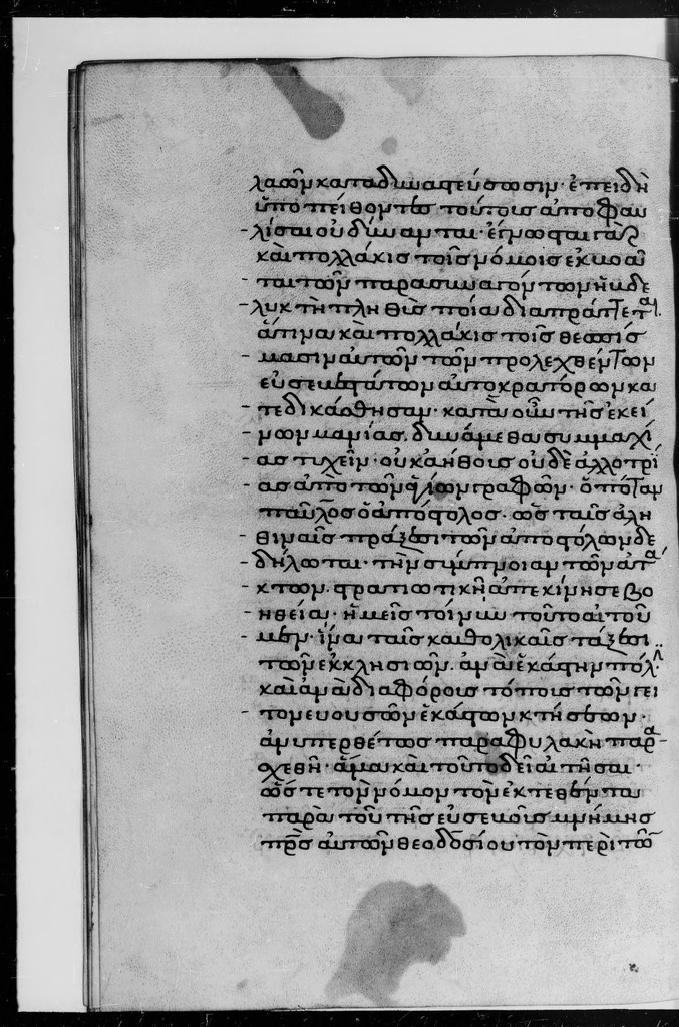 λαῶν καταδυναστεύσωσιν· ἐπειδὴ
ὑποπείθοντες τούτοις ἀποσφαν
λίσαι οὐ δύνανται·
καὶ πολλάκις τοῖς νόμοις ἐκ
ται τῶν παρασυναγόντων ἡ δε
τῇ πληθὺς ποία διαπράττεται.
ἅτινα καὶ πολλάκις τοῖς θεσπίς
μασιν αὐτῶν τῶν προλεχθέντων
εὐσεβεστάτων αὐτοκρατόρων κα
τεδικάσθησαν· κατὰ οὖν τῆς ἐκεί
νων μανίας. δυνάμεθα συμμαχί
ας τυχεῖν· οὐκ ἀήθους οὐδὲ ἀλλοτρί
ας ἀπὸ τῶν ἁγίων γραφῶν· ὁπόταν
παῦλος ὁ ἀπόστολος. ὡς ταῖς ἀλη
θιναῖς πράξεσι τῶν ἀποστόλων δε
δήλωται· τὴν σύμπνοιαν τῶν ἀτά
κτων. στρατιωτικῇ ἀπεκίνησε βο
ηθείᾳ· ἡμεῖς τοίνυν τοῦτο αἰτοῦ
μεν· ἵνα ταῖς καθολικαῖς τάξεσι
τῶν ἐκκλησιῶν. ἀνὰ ἑκάστην πόλιν
καὶ ἀνὰ διαφόροις τόποις τῶν γει
τονευουσῶν ἑκάστων κτήσεων·
ἀνυπερθέτως παραφυλακὴ παρα
σχεθῇ· ἅμα καὶ τοῦτο δεῖ αἰτῆσαι·
ὥστε τὸν νόμον τὸν ἐκτεθέντα
παρὰ τοῦ τῆς εὐσεβοῦς μνήμης
πρς αὐτῶν θεοδοσίου τὸν περὶ τῶν